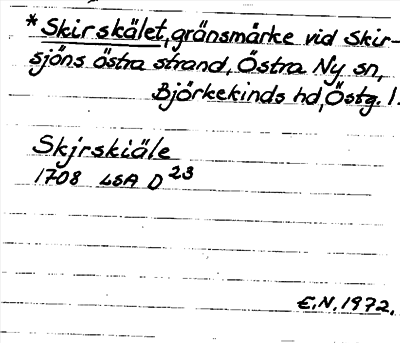 * Skirskälet, gränsmärke vid Skir-
sjöns östra strand, Östra Ny sn,
Björkekinds hd, Östg. l.
Skjrskiäle
1708 LSA D 23
E.N. 1972.